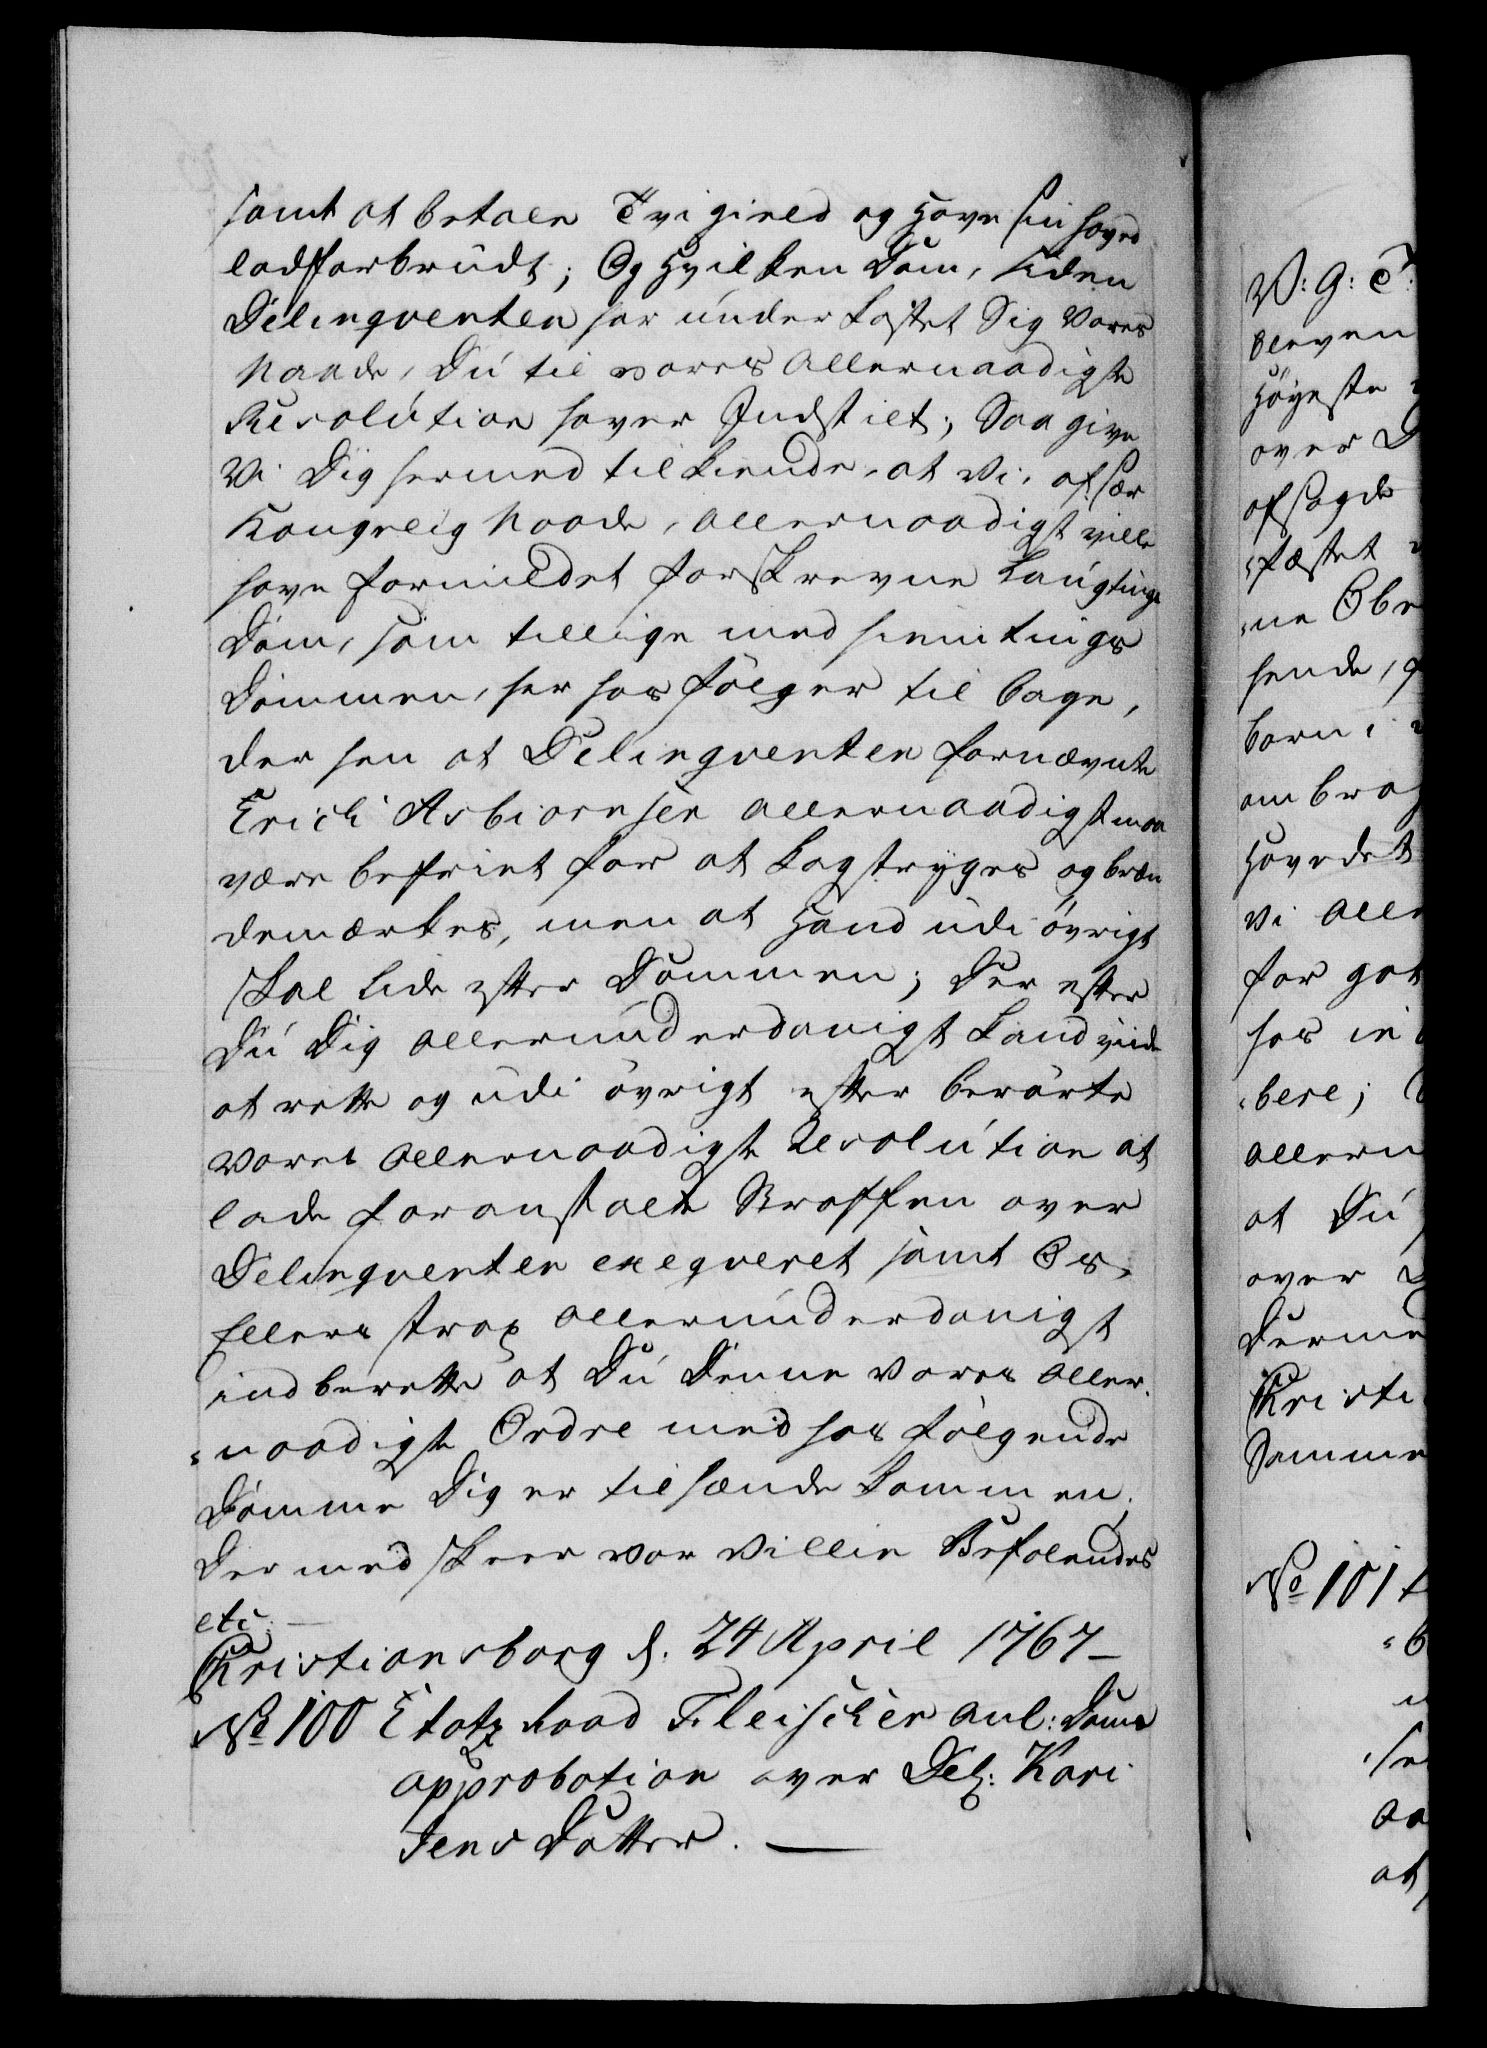 samt at betale Tvigield og have sin hoved
lodforbrudt; Og hvilken Dom, siden
Delinqventen har underkastet Sig Vores
Naade, Du til vores Allernaadigste
Resolution haver Indstilt; Saa give
Vi Dig hermed tilkiende, at Vi, af sær
Kongelig Naade, allernaadigst ville
have formildet forskrevne Laugtings
Dom, som tillige med hiemtings
Dommen, her hos følger til bage,
der hen at Delinqventen fornævnte
Erich Asbiørnsen allernaadigst maa
være befriet for at Kagstryges og bræn
demærkes, men at Hand udi øvrigt
skal lide efter Dommen; Der efter
Du Dig allerunderdanigst Land viide
at rette og udi øvrigt efter berørte
Vores allernaadigste Resolution at
lade foranstalte Straffen over
Delinqventen exeqveret samt Os,
Ellers strax allerunderdanigst
indberette at Du Denne Vores Aller-
=naadigste Ordre med hos følgende
Domme Dig er tilhænde kommen;
Dermed skeer vor Villie Befalendes
etc:
Christiansborg d. 24 April 1767—
No 100 Etatz Raad Fleischer anl: Doms
approbation over Del: Kari
Jens Datter. —
V: G: T:
bleven
Høyeste
over D
afsagde
=fæstet
=ne Obe
hende,
barn i
ombra
Hovedet
Vi Alle
for got
hos in
=bere;
Allern
at Du
over
Derme
Christi
Samme
No 101
=b
at